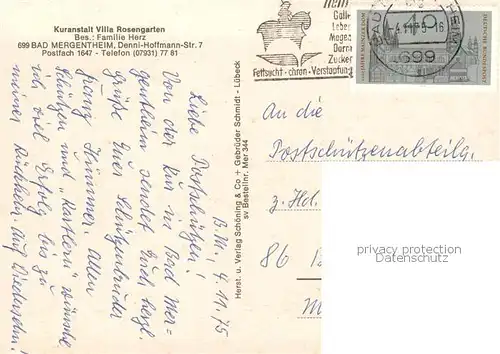 Kuranstalt Villa Rosengarten
Bes.: Familie Herz
699 BAD MERGENTHEIM, Denni-Hoffmann-Str. 7
Postfach 1647 - Telefon (07931) 77 81
Galle
Leber
Magen
Darm
Zucker
Fettsucht - chron - Verstopfung
BAD
4.11.75-16
699
An die
Postschützenabteilg.
z. Hd.
86 B
privacy protection
AnsichtskartenVersand.com
Herst. u. Verlag Schöning & Co + Gebrüder Schmidt - Lübeck
sv Bestellnr. Mer 344
B.M., 4.11.75
Liebe Postschützen!
Von der Kur in Bad Mer-
gentheim sendet Euch herzl.
Grüße Euer Schützenbruder
Franz Hümmer. Allen
Schützen und "Kartlern" wünsche
ich viel Erfolg bis zu
meiner Rückkehr. Auf Wiedersehn!